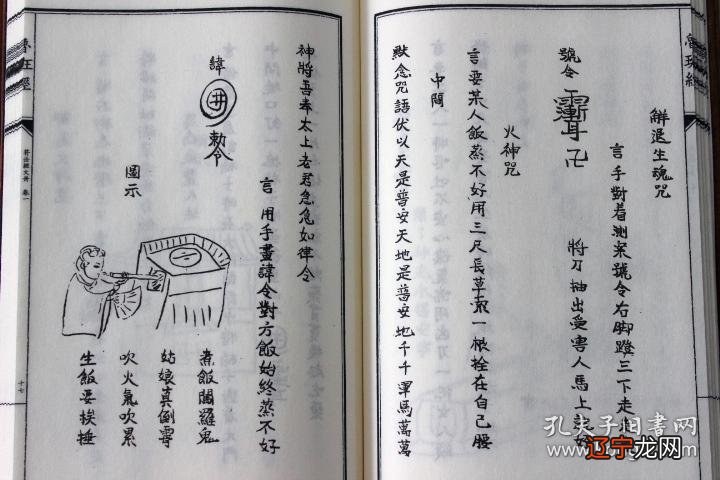 魯班經
解退生魂咒
言手對着測案號令右脚蹬三下走
將刀抽出受害人馬上
號令
卍
火神咒
言要某人飯蒸不好用三尺長草一根拴在自己腰
中間
默念咒語伏以天是普安天地是普安地千千軍馬萬萬
神將吾奉太上老君急急如律令
諱
井
敕令
言用手畫諱令對方飯始終蒸不好
圖示
煮飯閻羅鬼
姑娘真倒霉
吹火氣吹累
生飯要挨捶
魯班經
卷一
十七
孔夫子旧書网
辽宁龙网